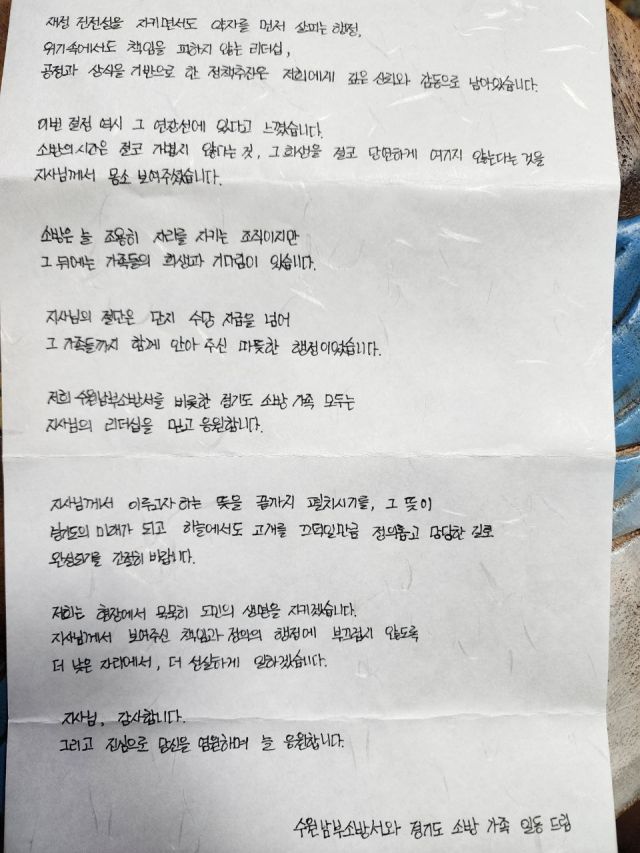 재정 건전성을 지키면서도 약자를 먼저 살피는 행정,
위기속에서도 책임을 피하지 않는 리더십,
공정과 상식을 기반으로 한 정책추진은 저희에게 깊은 신뢰와 감동으로 남아있습니다.
이번 결정 역시 그 연장선에 있다고 느꼈습니다.
소방의 시간은 결코 가볍지 않다는 것, 그 희생을 결코 단면하게 여기지 않는다는 것을
지사님께서 몸소 보여주셨습니다.
소방은 늘 조용히 자리를 지키는 조직이지만
그 뒤에는 가족들의 희생과 기다림이 있습니다.
지사님의 결단은 단지 수당 지급을 넘어
그 가족들까지 함께 안아 주신 따뜻한 행정이었습니다.
저희 수원남부소방서를 비롯한 경기도 소방 가족 모두는
지사님의 리더십을 믿고 응원합니다.
지사님께서 이루고자 하는 뜻을 끝까지 펼치시기를, 그 뜻이
경기도의 미래가 되고 하늘에서도 고개를 끄덕일만큼 정의롭고 당당한 길로
완성되기를 간절히 바랍니다.
저희는 현장에서 묵묵히 도민의 생명을 지키겠습니다.
지사님께서 보여주신 책임과 정의의 행정에 부끄럽지 않도록
더 낮은 자리에서, 더 성실하게 일하겠습니다.
지사님, 감사합니다.
그리고 진심으로 당신을 염원하며 늘 응원합니다.
수원남부소방서와 경기도 소방 가족 일동 드림